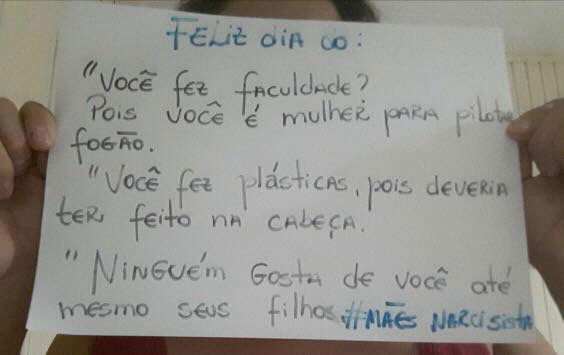 FELIZ DIA DO:
"VOCÊ FEZ FACULDADE?
POIS VOCÊ É MULHER PARA PILOTAR
FOGÃO.
"VOCÊ FEZ PLÁSTICAS, POIS DEVERIA
TER FEITO NA CABEÇA.
"NINGUÉM GOSTA DE VOCÊ ATÉ
MESMO SEUS FILHOS. #MÃES NARCISISTA